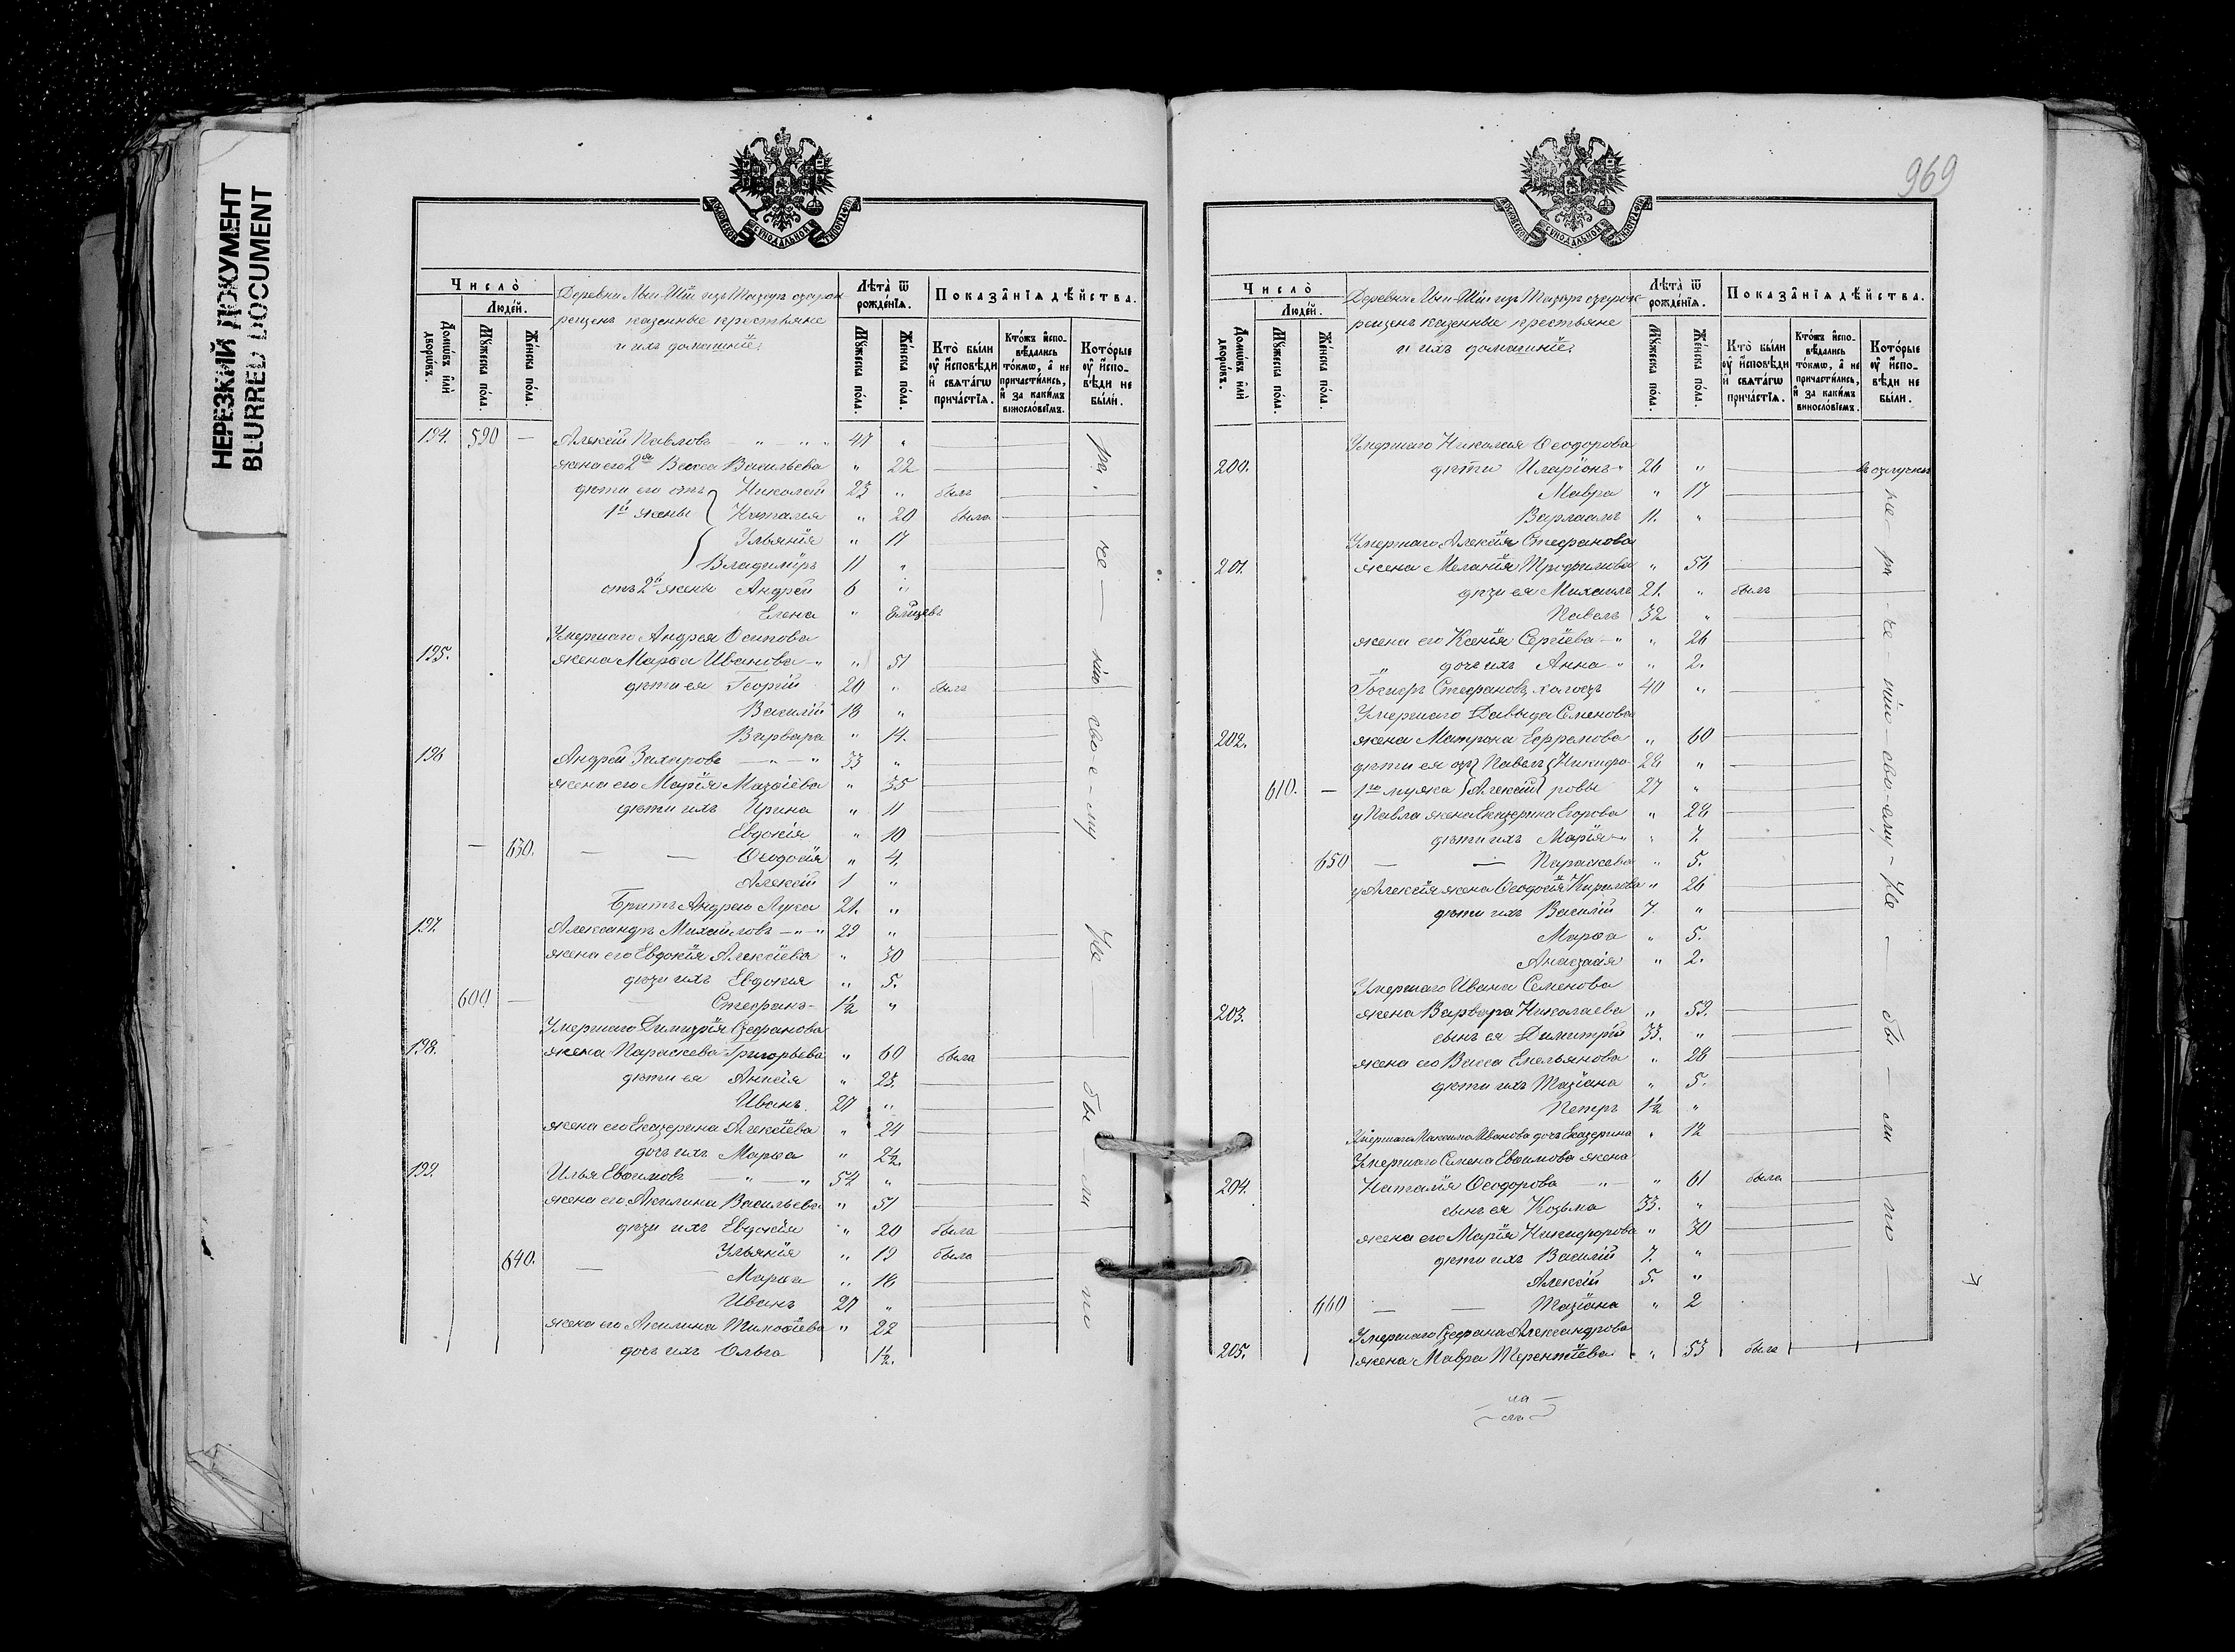 НЕРЕЗКИЙ ДОКУМЕНТ
BLURRED DOCUMENT
МОСКОВСКОЙ СѴНОДАЛЬНОЙ ТИПОГРАФІИ
Число̀
Людей.
Домѡвъ и҆лѝ дворѡвъ.
Мꙋжеска пола.
Женска пола.
Деревни изъ Татаръ старок-
рещенъ казенные крестьяне
и ихъ домашніе.
Лѣта̀ ѿ рожденїѧ.
Мꙋжеска пола.
Женска пола.
Показанїѧ дѣйства.
Кто̀ были оу҆ и҆сповѣди и҆ свѧтагѡ причастїѧ.
Ктожъ и҆сповѣдались токмѡ, а҆ не причастились, и҆ за какимъ винословїемъ.
Которые оу҆ и҆сповѣди не были.
194. 590 — Алексій Павловъ — " — " " 47 "
жена его 2ая Васса Васильева " 22
дѣти его отъ Николай 23 " былъ
1й жены Наталія " 20 была
Ульянія " 17
Владиміръ 11 "
отъ 2й жены Андрей 6 "
Елена "
Умершаго Андрея Осипова
195. жена Марѳа Иванова — " " 51
дѣти ея Георгій 20 " былъ
Василій 18 "
Варвара " 14.
196 Андрей Захаровъ — " — " 33 "
жена его Марія Матѳіева " 35
дѣти ихъ Ирина " 11
Евдокія " 10
— 630. — — Ѳеодосія " 4.
Алексій 1 "
Братъ Андрею Лука 21. "
197. Александръ Михайловъ — " — " 29 "
жена его Евдокія Алексіева " 30
дѣти ихъ Евдокія " 5.
600 — Стефанъ — 1½ "
Умершаго Димитрія Стефанова
198. жена Параскева Григорьева " 60 была
дѣти ея Анисія " 23.
Иванъ. 27 "
жена его Екатерина Алексіева " 24
дочь ихъ Марѳа " 2½.
199. Илья Евѳимовъ — " — " 54 "
жена его Акилина Васильева " 51
дѣти ихъ Евдокія " 20 была
640. — Ульянія " 19 была
Марѳа " 18
Иванъ 27 "
жена его Акилина Тимоѳіева " 22
дочь ихъ Ольга 1½.
ра — че — нію сво-е-му не бы ли по
969
МОСКОВСКОЙ СѴНОДАЛЬНОЙ ТИПОГРАФІИ
Число̀
Людей.
Домѡвъ и҆лѝ дворѡвъ.
Мꙋжеска пола.
Женска пола.
Деревни изъ Татаръ старок-
рещенъ казенные крестьяне
и ихъ домашніе.
Лѣта̀ ѿ рожденїѧ.
Мꙋжеска пола.
Женска пола.
Показанїѧ дѣйства.
Кто̀ были оу҆ и҆сповѣди и҆ свѧтагѡ причастїѧ.
Ктожъ и҆сповѣдались токмѡ, а҆ не причастились, и҆ за какимъ винословїемъ.
Которые оу҆ и҆сповѣди не были.
Умершаго Николая Ѳеодорова
200. дѣти Иларіонъ " 26 " въ отлучкѣ
Мавра " 17
Варлаамъ 11. "
Умершаго Алексія Стефанова
201. жена Меланія Трофимова " 54
дѣти ея Михаилъ 21. " былъ
Павелъ 32 "
жена его Ксенія Сергіева — " " 26
" дочь ихъ Анна — " " 2.
Стефановъ холостъ 40 "
Умершаго Давыда Семенова
202. жена Матрона Ефремова " 60
дѣти ея отъ Павелъ Никифо- 28 "
610. — 1го мужа Алексій ровы 27 "
у Павла жена Екатерина Егорова " 28
дѣти ихъ Марія — " " 7.
650 — — Параскева " 5.
у Алексія жена Ѳеодосія Кирилова " 26
дѣти ихъ Василій 7. "
Марѳа " 5.
Анастасія " 2.
Умершаго Ивана Семенова
203. жена Варвара Николаева " 59.
сынъ ея Димитрій 33. "
жена его Васса Емельянова " 28
дѣти ихъ Татіана " 5.
Петръ 1½ "
Умершаго Максима Иванова дочь Екатерина " 14
Умершаго Семена Евѳимова жена
204. Наталія Ѳеодорова — " — " 61 была
сынъ ея Козьма 33. "
жена его Марія Никифорова " 30
дѣти ихъ Василій 7. "
Алексій 5. "
660 — — Татіана " 2
Умершаго Стефана Александрова
205. жена Мавра Терентіева " " 53 была
не — ра — че — нію — сво-ему — не — бы — ли — по